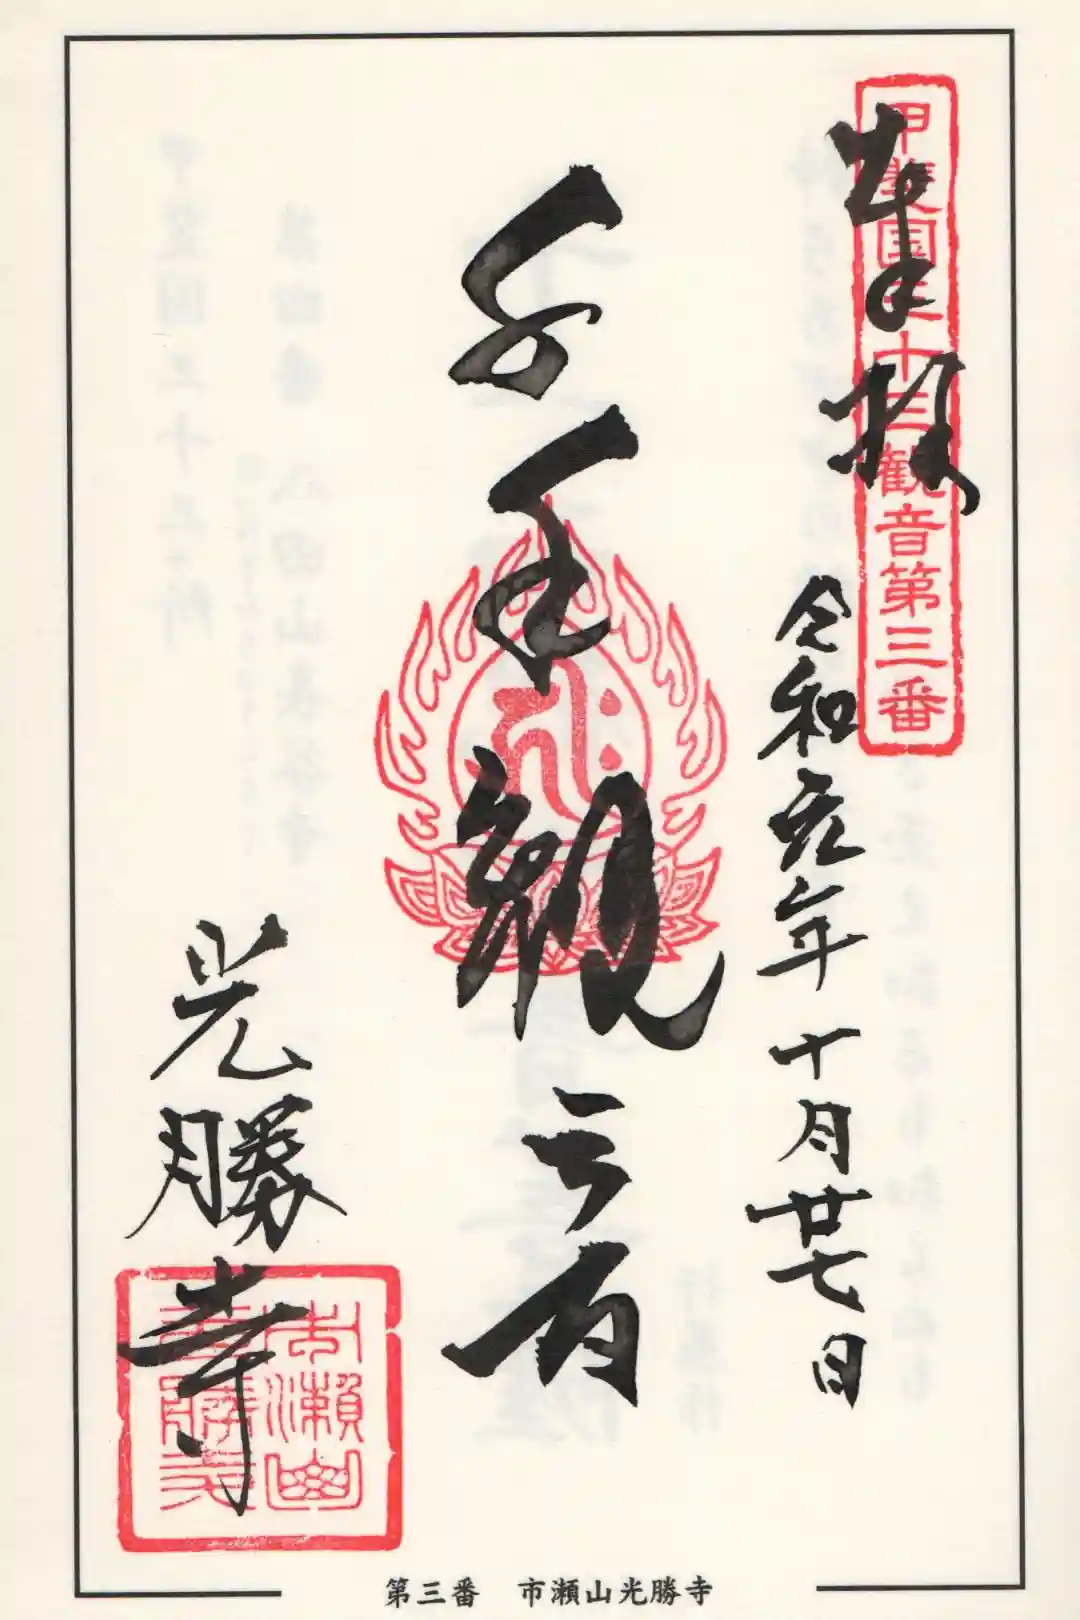 奉拝
甲斐国三十三観音第三番
令和元年十月廿七日
千手観音
光勝寺
市瀬山
光勝寺
第三番　市瀬山光勝寺